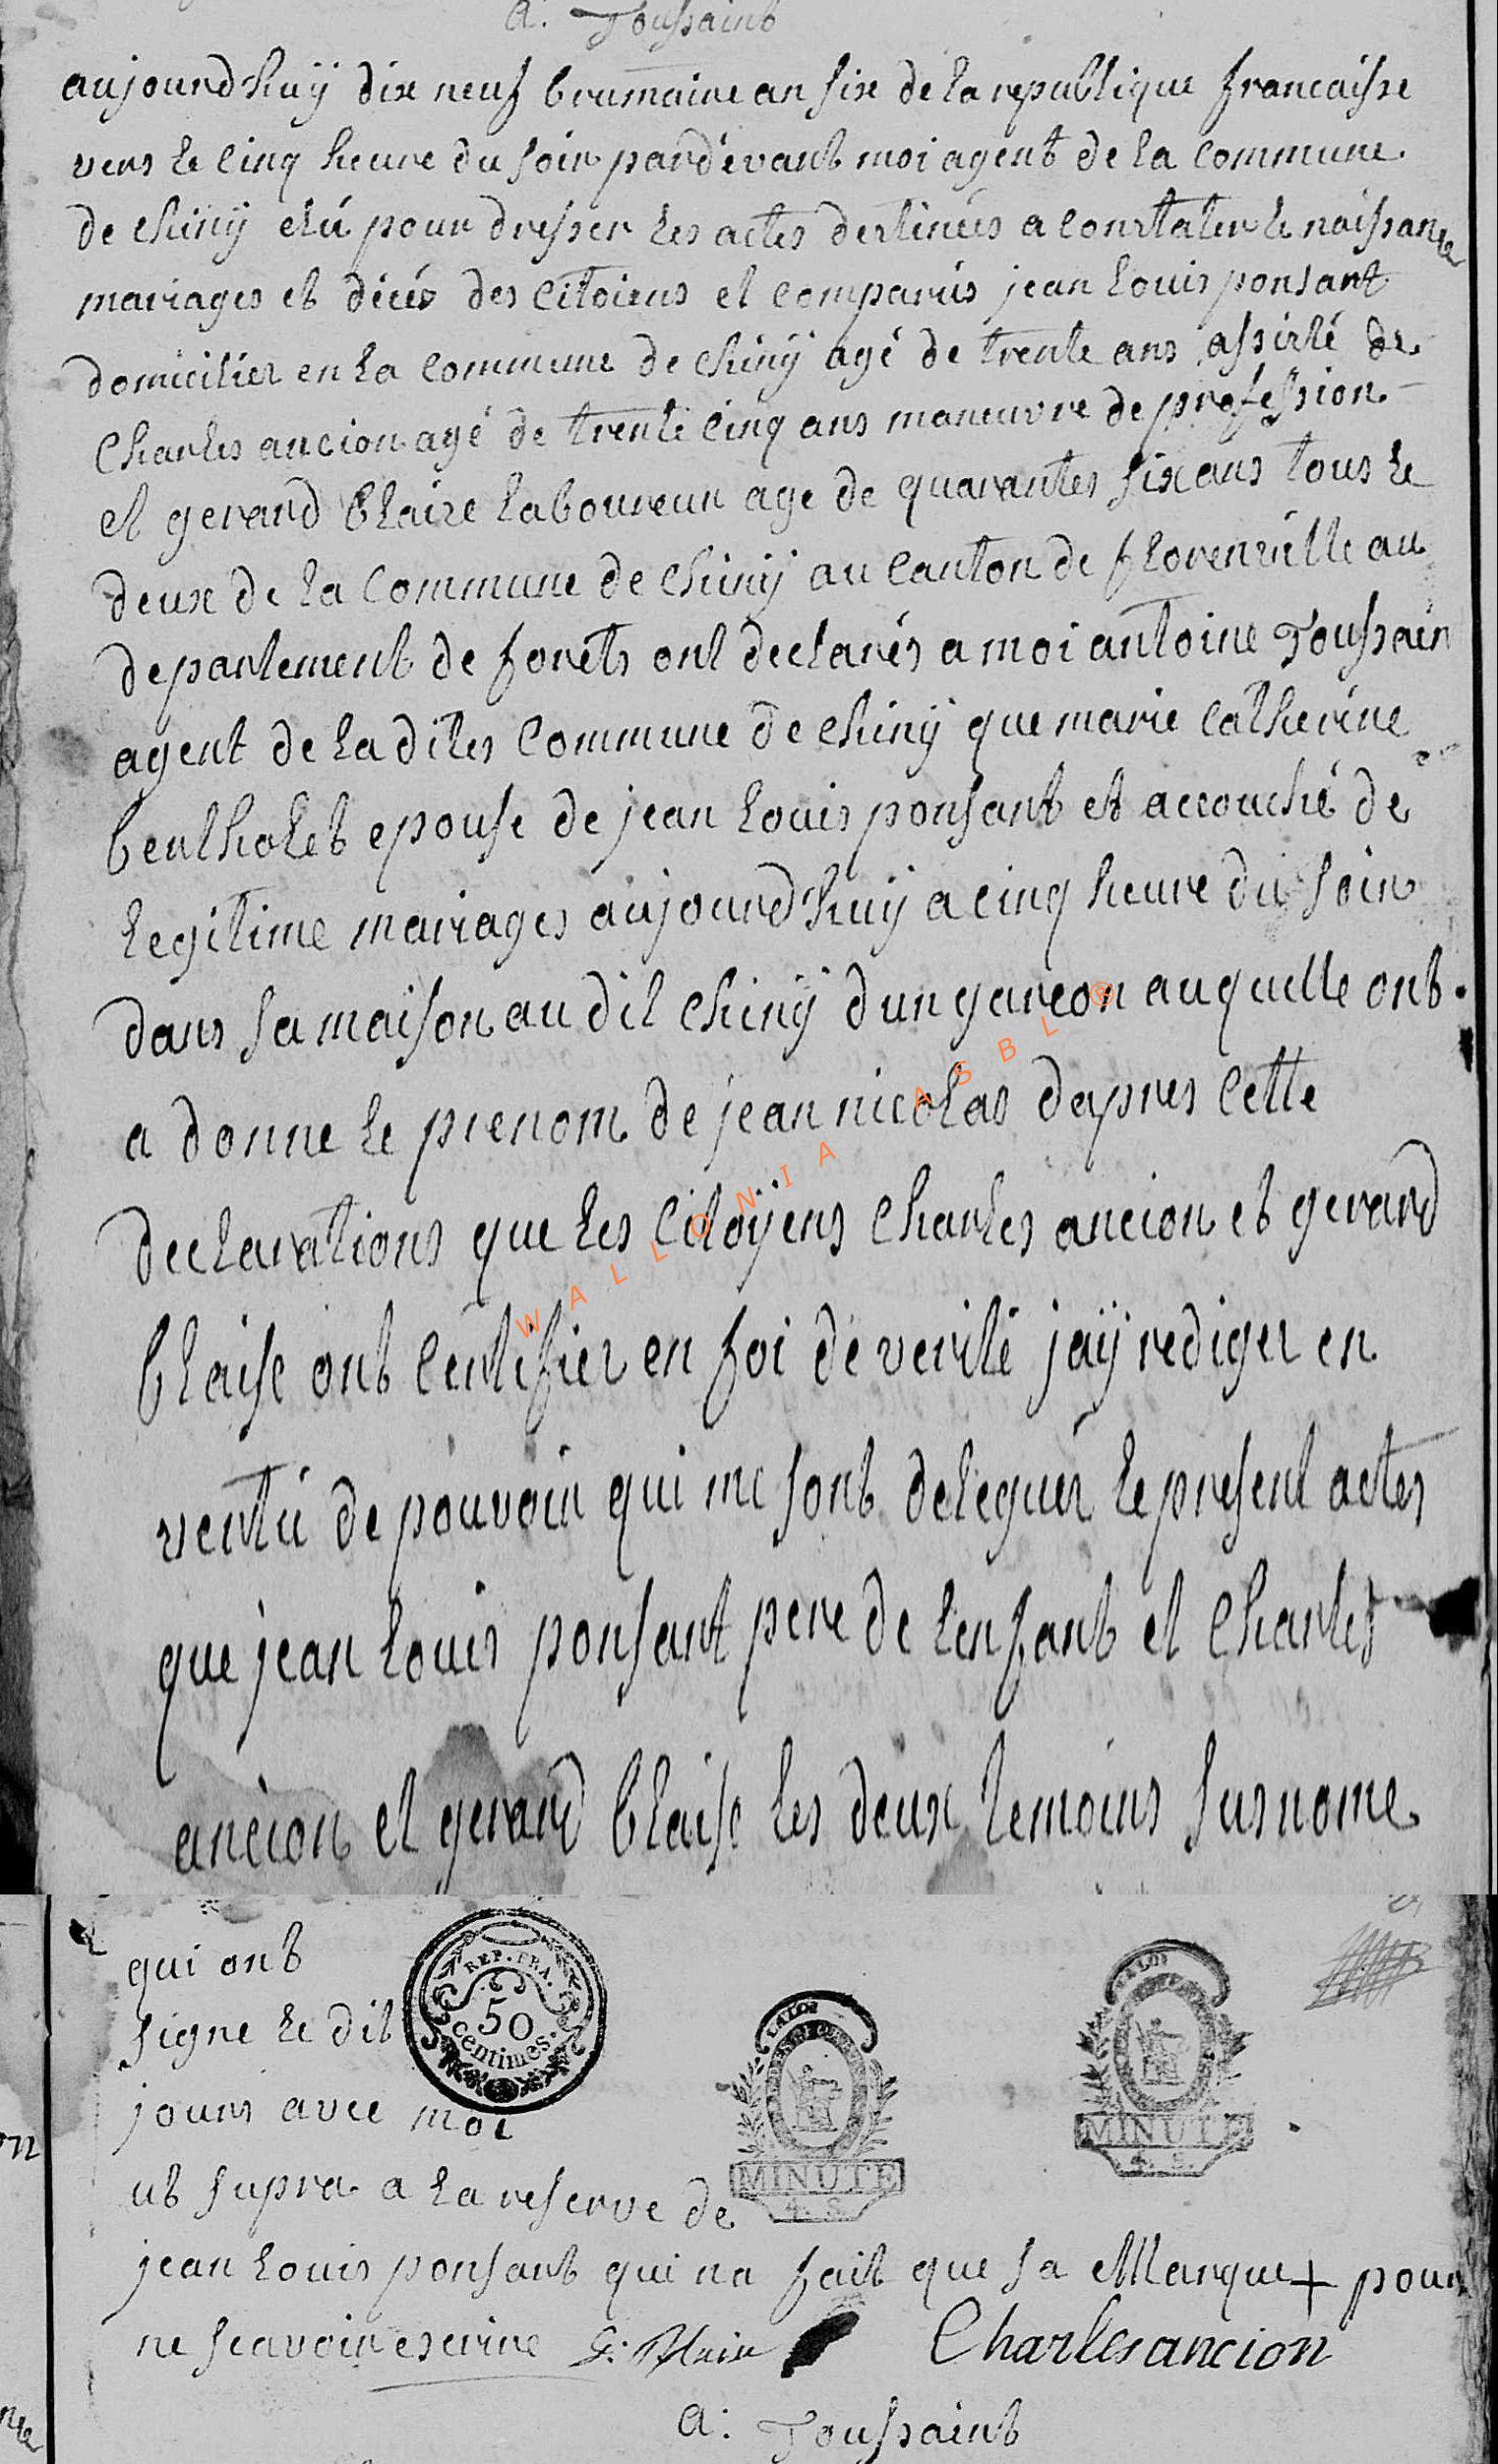 a. Toussaint
aujourdhuÿ dix neuf brumaire an six de la republique francaisse
vers le cinq heure du soir pardevant moi agent de la commune
de chinÿ elú pour dresser les actes destinées a constater le naissance
mariages et décés des citoiens et comparus jean louis ponsant
domicilier en la commune de chinÿ agé de trente ans assisté de
charles ancion agé de trente cinq ans maneuvre de profession
et gerard blaize laboureur age de quarantes six ans tous le
deux de la commune de chinÿ au canton de florenville au
departement de forêts ont declarés a moi antoine Toussain
agent de la dites commune de chinÿ que marie catherine
bertholet epouse de jean louis ponsant et accouché de
legitime mariages aujourdhuÿ a cinq heure du soir
dans sa maison au dit chinÿ dun garcon auquelle ont
a donne le prenom de jean nicolas dapres cette
declarations que les citoÿens charles ancion et gerard
blaise ont certifier en foi de verité jaÿ rediger en
vertú de pouvoir qui me sont deleguér le present actes
que jean louis ponsant pere de lenfant et charles
ancion et gerard blaise les deux temoins susnome
qui ont
signe le dit
jours avec moi
ut supra a la reserve de
jean louis ponsant qui na fait que sa Marque + pour
ne scavoir escrire G: Blaise Charles ancion
a: Toussaint
REP. FRA.
50
centimes.
LA LOI
MINUTE
4. S.
LA LOI
MINUTE
4. S.
WALLONIA ASBL ®